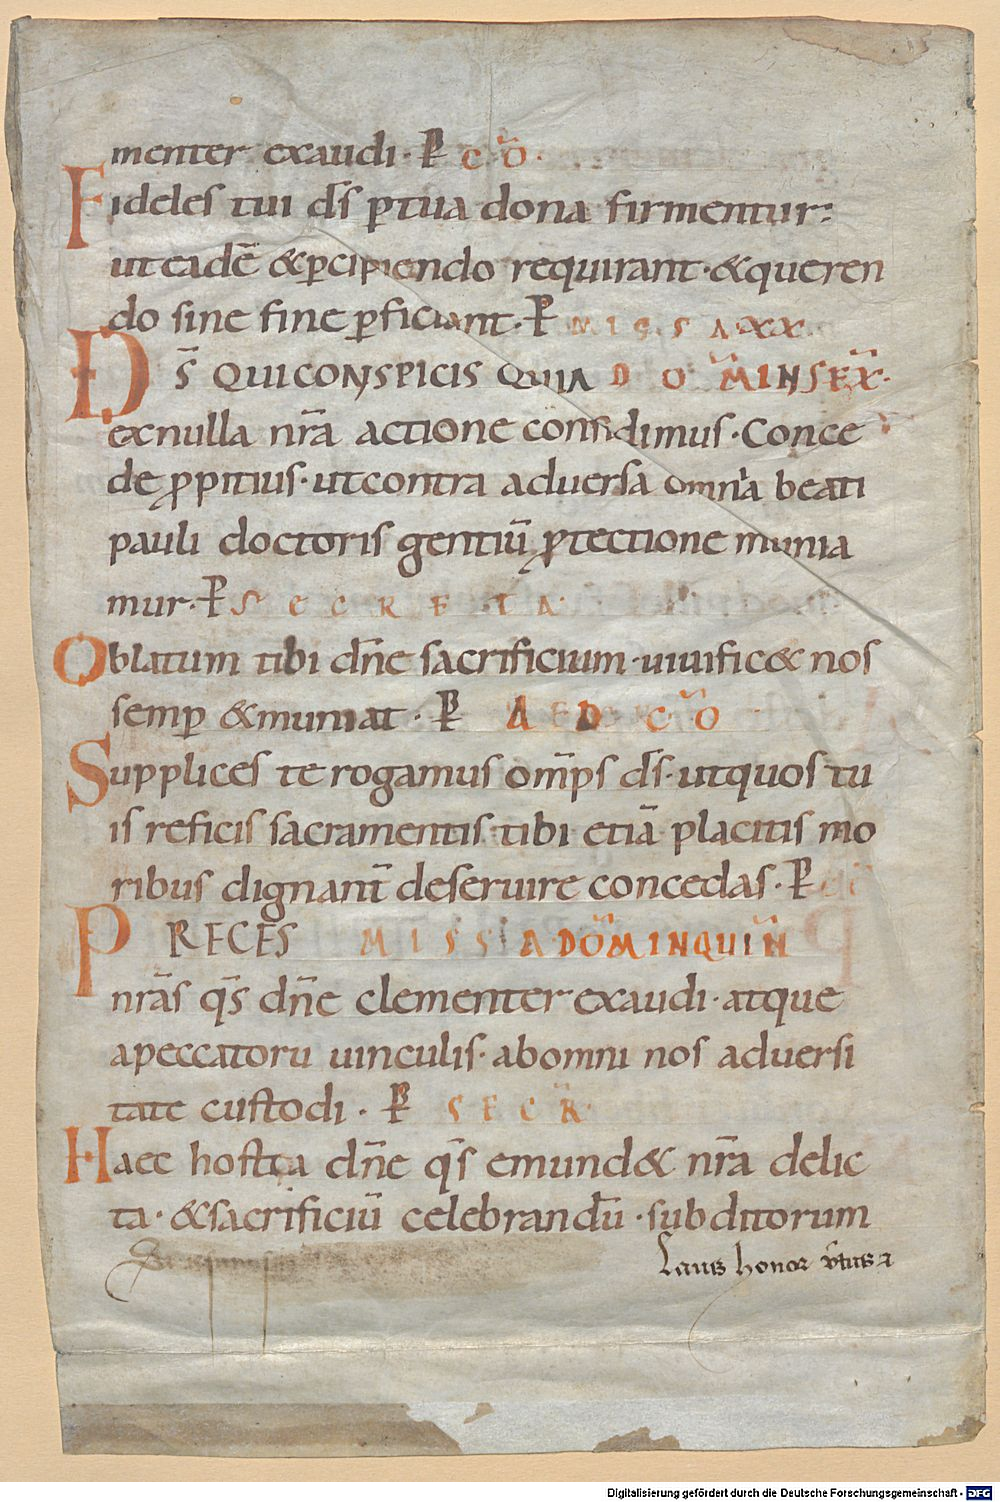 menter exaudi · P̄ c̄ō ·
Fideles tui d̄s ꝑ tua dona firmentur:
ut eadē & ꝑcipiendo requirant · & queren
do sine fine ꝑficiant · P̄ MISSA XX
D̄S QUI CONSPICIS QUIA DOM̄ IN SEX̄ ·
ex nulla nr̄a actione confidimus · Conce
de ꝓpitius · ut contra aduersa omnia beati
pauli doctoris gentiū ꝓtectione munia
mur · P̄ SECRETA ·
Oblatum tibi dn̄e sacrificium · uiuific& nos
semꝑ & muniat · P̄ AD C̄Ō
Supplices te rogamus om̄ps d̄s · ut quos tu
is reficis sacramentis · tibi etiā placitis mo
ribus dignant̄ deseruire concedas · P̄
PRECES MISSA DŌM IN QUIN̄
nr̄as q̄s dn̄e clementer exaudi · atque
a peccatorū uinculis · ab omni nos aduersi
tate custodi · P̄ SECR̄
Haec hostia dn̄e q̄s emund& nr̄a delic
ta · & sacrificiū celebrandū · subditorum
Laus honor v̄tus
Digitalisierung gefördert durch die Deutsche Forschungsgemeinschaft - DFG